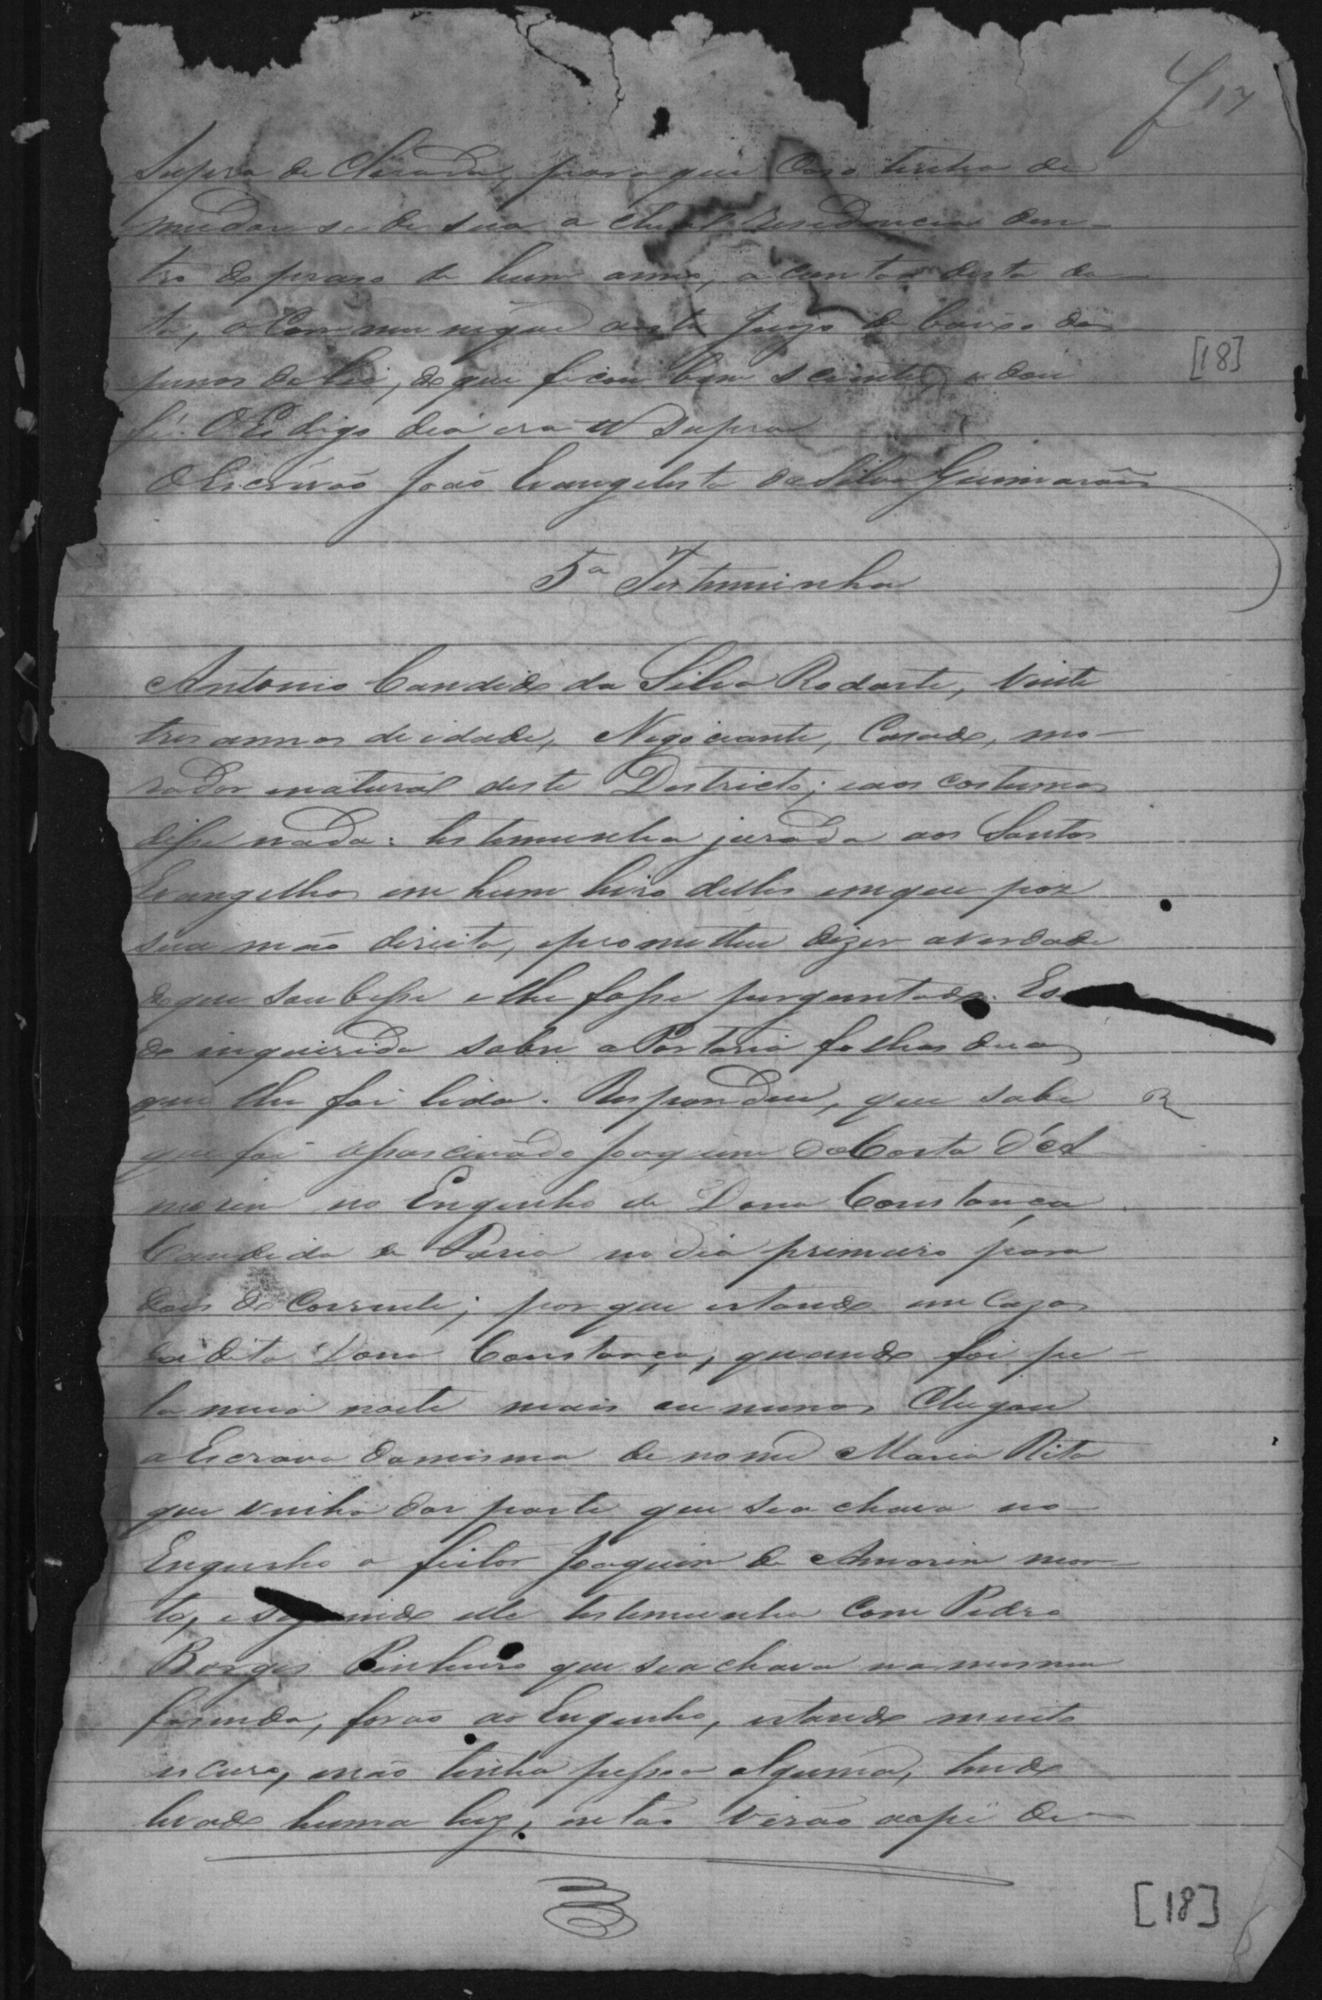 f 17
Supra declarada, para que caso tenha de
mudar se de sua actual residencia den-
tro do praso de hum anno, a contar desta da-
ta, o communique a este Juizo debaixo das
penas da Lei, do que ficou bem sciente, e dou
fé. O Es digo dia era ut supra
O Escrivão João Evangelista da Silva Guimarães
[18]
5a Testeminha
Antonio Candido da Silva Rodarte, vinte
tres annos de idade, Negociante, Casado, mo-
rador enatural deste Destricto; eaos costumes
disse nada: testemunha jurada aos Santos
Evangelhos em hum livro delles emque poz
sua mão direita, eprometteu dizer averdade
do que soubesse elhe fosse perguntado. E
do inquirido sobre aPortaria folhas duas
que lhe foi lida. Respondeu, que sabe
R
que foi assacinado Joaquim da Costa d'A
morim no Engenho de Dona Constança
Candida de Paria no dia primeiro para
dois do corrente; por que estando em cazas
da dita Dona Constança, quando foi pe-
la meia noite mais ou menos chegou
a Escrava damesma de nome Maria Rita
que vinha dar parte que seachava no
Engenho o feitor Joaquim de Amorim mor-
to, e seguindo elle testemunha com Pedro
Borges Pinheiro que seachava namesma
fazenda, forão ao Engenho, estando muito
escuro, enão tinha pessoa alguma, tendo
levado huma luz, então virão aopé de
[18]